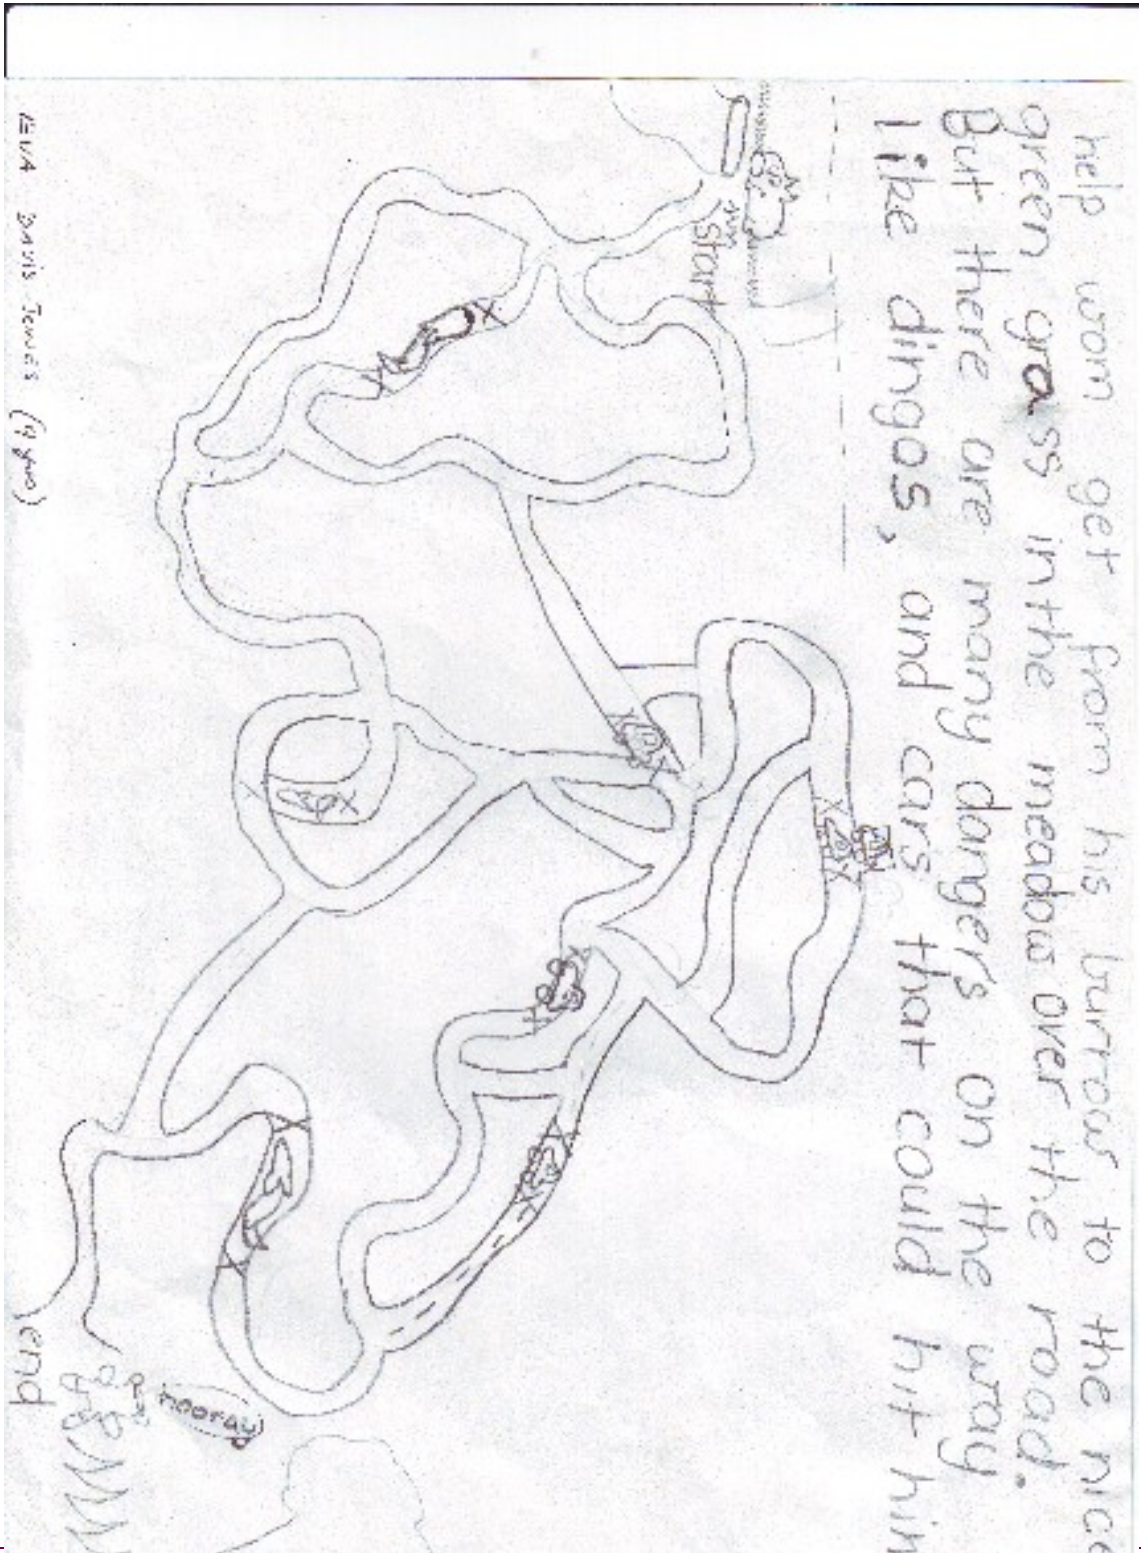 help wom get from his burrow to the nice
green grass in the meadow over the road.
But there are many dangers on the way
like dingos, and cars that could hit him
start
hooray
end
EVA DAVIS JONES (9 yrs)